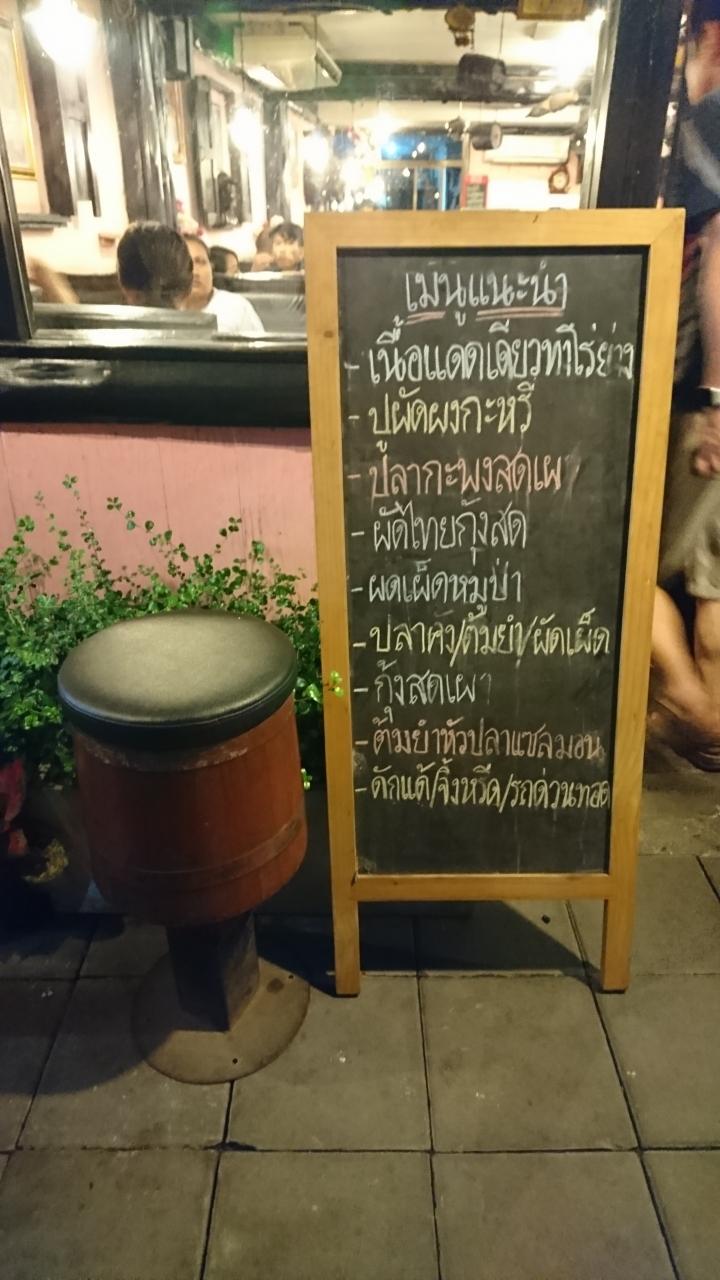 เมนูแนะนำ
- เนื้อแดดเดียวทาโร่ย่าง
- ปูผัดผงกะหรี่
- ปลากะพงสดเผา
- ผัดไทยกุ้งสด
- ผัดเผ็ดหมูป่า
- ปลาคัง/ต้มยำ/ผัดเผ็ด
- กุ้งสดเผา
- ต้มยำหัวปลาแซลมอน
- ดักแด้/จิ้งหรีด/รถด่วนทอด